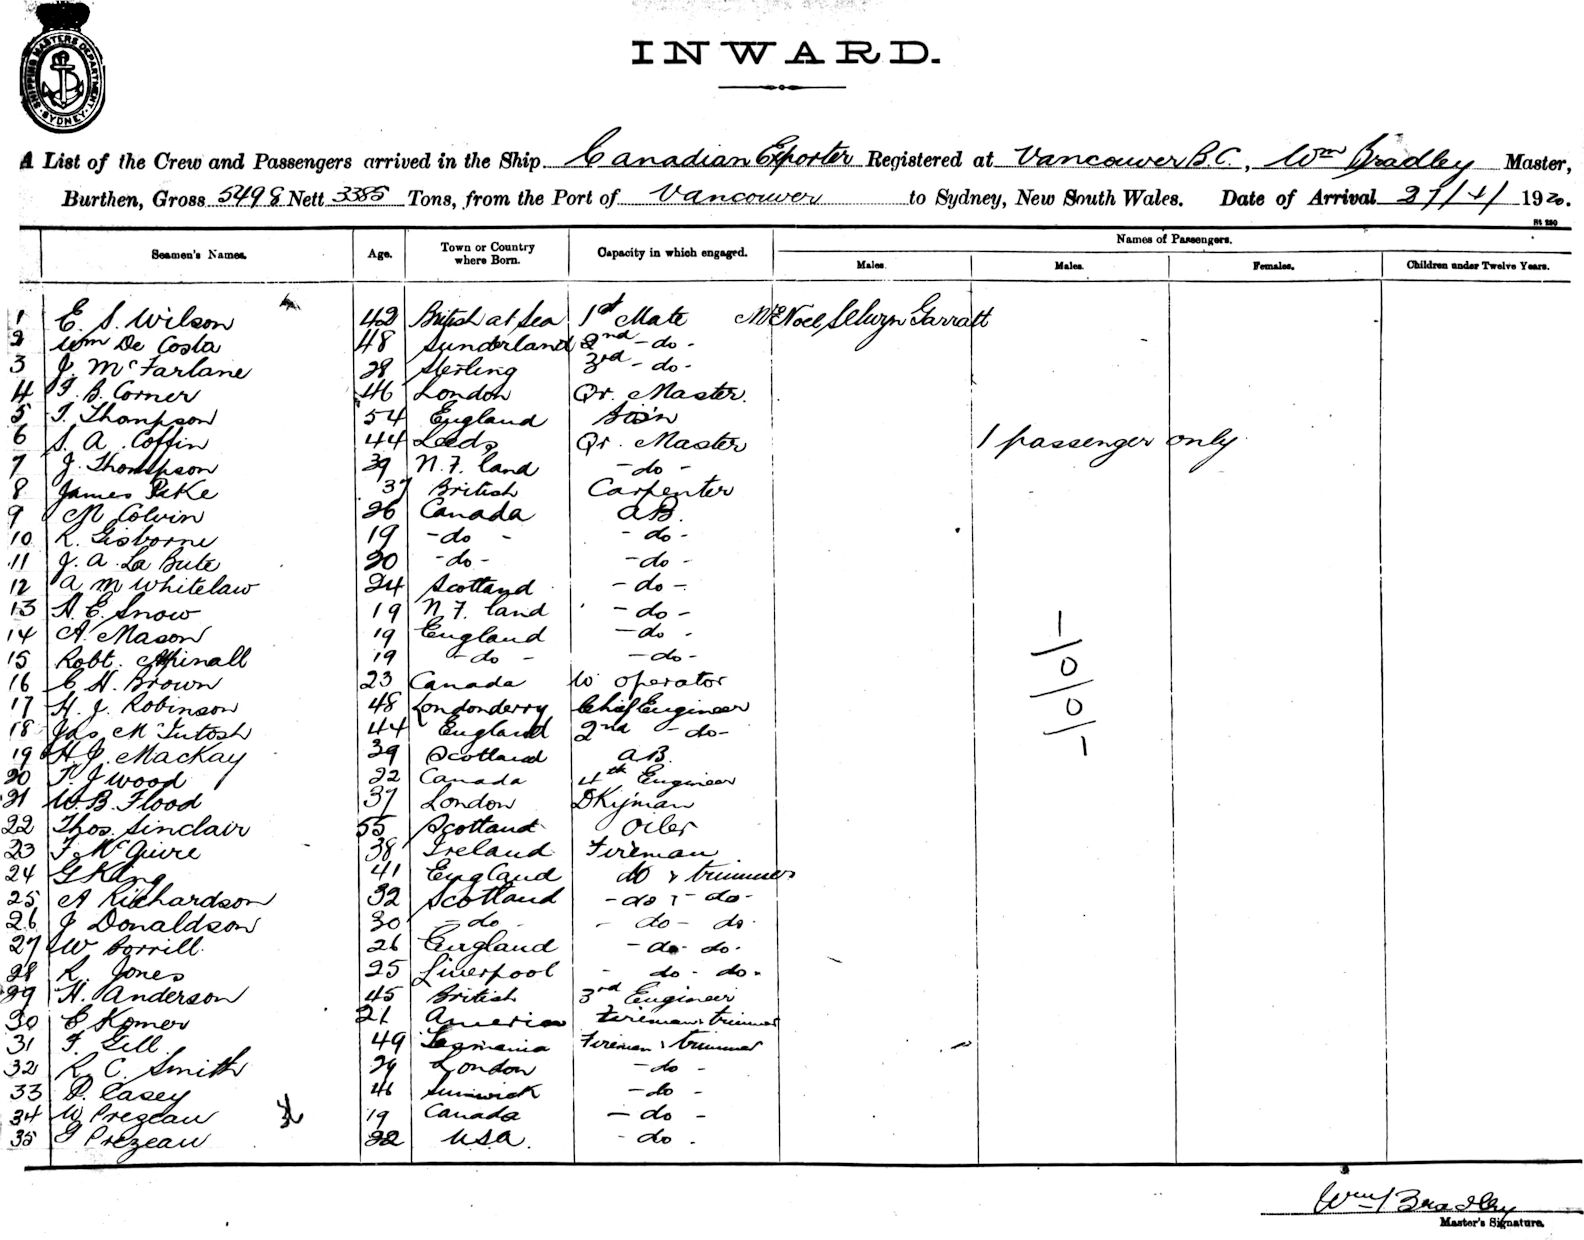 SHIPPING MASTERS DEPARTMENT SYDNEY
INWARD.
A List of the Crew and Passengers arrived in the Ship Canadian Exporter Registered at Vancouver B.C., Wm Bradley Master,
Burthen, Gross 5498 Nett 3385 Tons, from the Port of Vancouver to Sydney, New South Wales. Date of Arrival 21/4/1920.
Seamen's Names. Age. Town or Country where Born. Capacity in which engaged. Names of Passengers.
Males. Males. Females. Children under Twelve Years.
1 E. S. Wilson 42 British at Sea 1st Mate Mr Noel Selwyn Garratt
2 Wm De Costa 48 Sunderland 2nd - do -
3 J. McFarlane 28 Sterling 3rd - do -
4 F. B. Corner 46 London Qr. Master.
5 T. Thompson 54 England Bos'n
6 S. A. Coffin 44 Leeds Qr. Master 1 passenger only
7 J. Thompson 39 N. F. land - do -
8 James Pike 37 British Carpenter
9 M Colvin 26 Canada AB.
10 R. Gisborne 19 - do - - do -
11 J. A. La Bute 20 - do - - do -
12 A M Whitelaw 24 Scotland - do -
13 H. E. Snow 19 N. F. land - do -
14 A. Mason 19 England - do -
15 Robt. Aspinall 19 - do - - do -
16 C H. Brown 23 Canada W operator
17 H. J. Robinson 48 Londonderry Chief Engineer
18 Jas McIntosh 44 England 2nd - do -
19 H. J. MacKay 39 Scotland AB.
20 T. J Wood 22 Canada 4th Engineer
21 W. B. Flood 37 London Dkyman
22 Thos. Sinclair 55 Scotland Oiler
23 F. McGuire 38 Ireland Fireman
24 G King 41 England do & trimmer
25 A Richardson 32 Scotland - do - do -
26 J Donaldson 30 - do - - do - do -
27 W Borrill 26 England - do - do -
28 R. Jones 25 Liverpool - do - do -
29 H. Anderson 45 British 3rd Engineer
30 C Komer 21 America Fireman & trimmer
31 F. Gill 49 Tasmania Fireman & trimmer
32 R. C. Smith 29 London - do -
33 P. Casey 46 - do -
34 W Prezeau 19 Canada - do -
35 G Prezeau 22 U.S.A. - do -
-/0/0/-
Wm Bradley
Master's Signature.